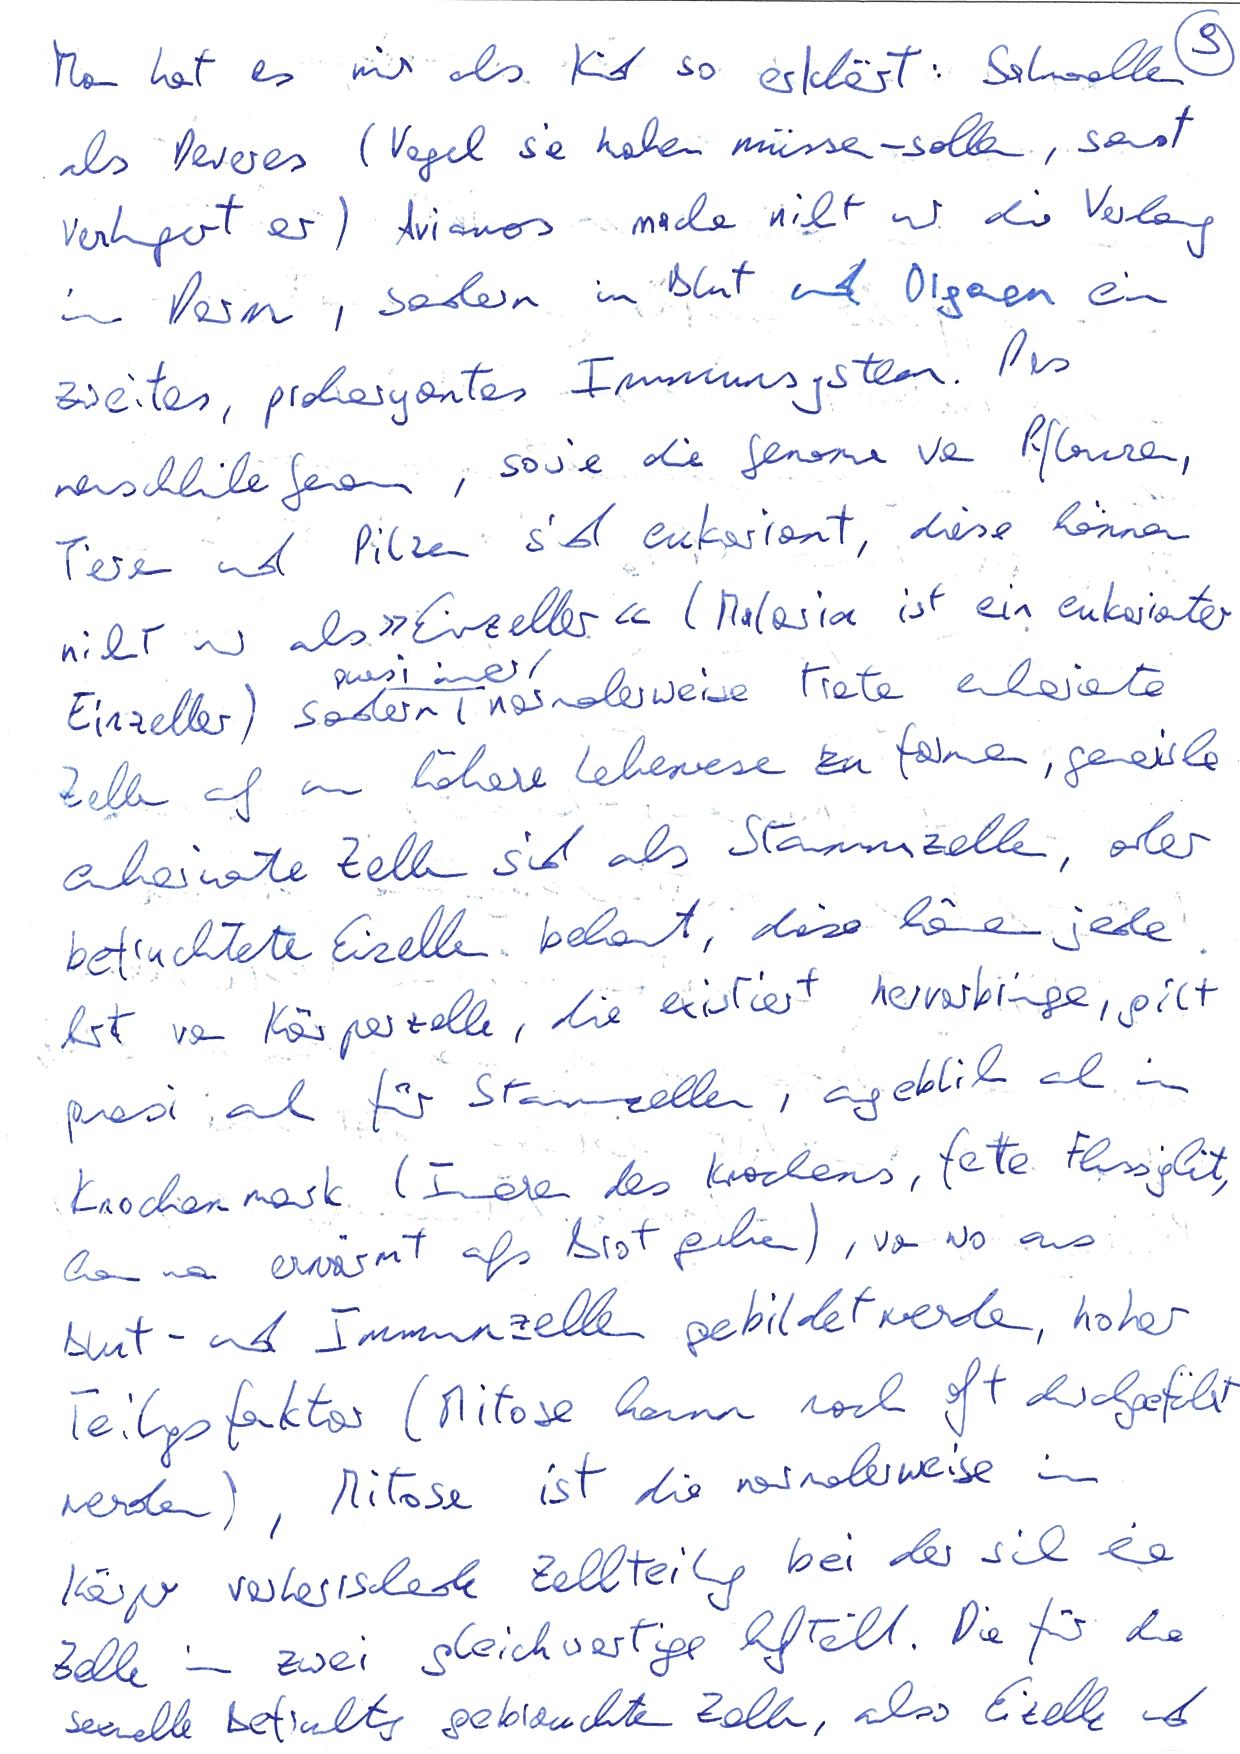 9
Man hat es mir als Kid so erklärt: Schnelle
als Deveres (Vogel sie haben müssen-sollen, sonst
verhungert er) Avianos mache nicht nur die Verdauung
im Darm, sondern in Blut und Organen ein
zweites, prokaryontes Immunsystem. Das
menschliche Genom, sowie die Genome von Pflanzen,
Tieren und Pilzen sind eukariont, diese können
nicht nur als »Einzeller« (Malaria ist ein eukarionter
quasi immer/
Einzeller) sondern normalerweise treten eukarionte
Zellen auf um höhere Lebewesen zu formen, gewisse
eukarionte Zellen sind als Stammzellen, oder
befruchtete Eizellen bekannt, diese können jede
Art von Körperzelle, die existiert hervorbringen, gilt
quasi auch für Stammzellen, angeblich auch im
Knochenmark (Inneren des Knochens, fette Flüssigkeit,
kann man erwärmt aufs Brot geben), von wo aus
Blut- und Immunzellen gebildet werden, hoher
Teilungsfaktor (Mitose kann noch oft durchgeführt
werden), Mitose ist die normalerweise im
Körper vorherrschende Zellteilung bei der sich eine
Zelle in zwei gleichwertige aufteilt. Die für die
sexuelle Befruchtung gebrauchten Zellen, also Eizelle und